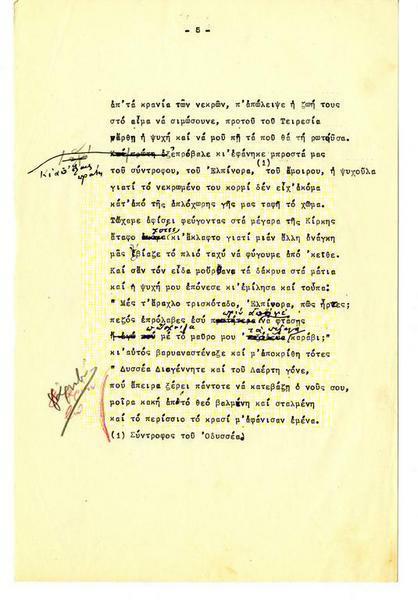 - 5 -
ἀπ'τά κρανία τῶν νεκρῶν, π'ἀπόλειψε ἡ ζωή τους
στό αἷμα νά σιμώσουνε, προτοῦ τοῦ Τειρεσία
νἄρθη ἡ ψυχή καί νά μοῦ πῆ τό ποῦ θά τή ρωτοῦσα.
πρώτη ξεπρόβαλε κι'ἐφάνηκε μπροστά μας
(1)
τοῦ σύντροφου, τοῦ Ἐλπίνορα, τοῦ ἄμοιρου, ἡ ψυχοῦλα
γιατί τό νεκρωμένο του κορμί δέν εἶχ'ἀκόμα
κατ'ἀπό τῆς ἁπλόχωρης γῆς μας ταφῆ τό χῶμα.
Τὤχαμε ἀφίσει φεύγοντας στά μέγαρα τῆς Κίρκης
ἄταφο κι'ἄκλαφτο γιατί μιάν ἄλλη ἀνάγκη
μᾶς ἐβίαζε τό πλιό ταχύ νά φύγουμε ἀπ'ἐκεῖθε.
Καί σάν τόν εἶδα μοὖρθανε τά δάκρυα στά μάτια
καί ἡ ψυχή μου ἐπόνεσε κι'ἐμίλησα καί τοὖπα:
" Μές τ'ἄραχλο τρισκόταδο, Ἐλπίνορα, πῶς ἦρτες;
πεζός ἐπρόλαβες ἐσύ νά φτάσης
μέ τό μαῦρο μου καράβι;"
κι'αὐτός βαρυαναστέναξε καί μ'ἀποκρίθη τότες
" Δυσσέα Διαγέννητε καί τοῦ Λαέρτη γόνε,
πού ἄπειρα ξέρει πάντοτε νά κατεβάζη ὁ νοῦς σου,
μοῖρα κακή ἀπ'τό θεό βαλμένη καί σταλμένη
καί τό περίσσιο τό κρασί μ'ἀφάνισαν ἐμένα.
(1) Σύντροφος τοῦ Ὀδυσσέα.